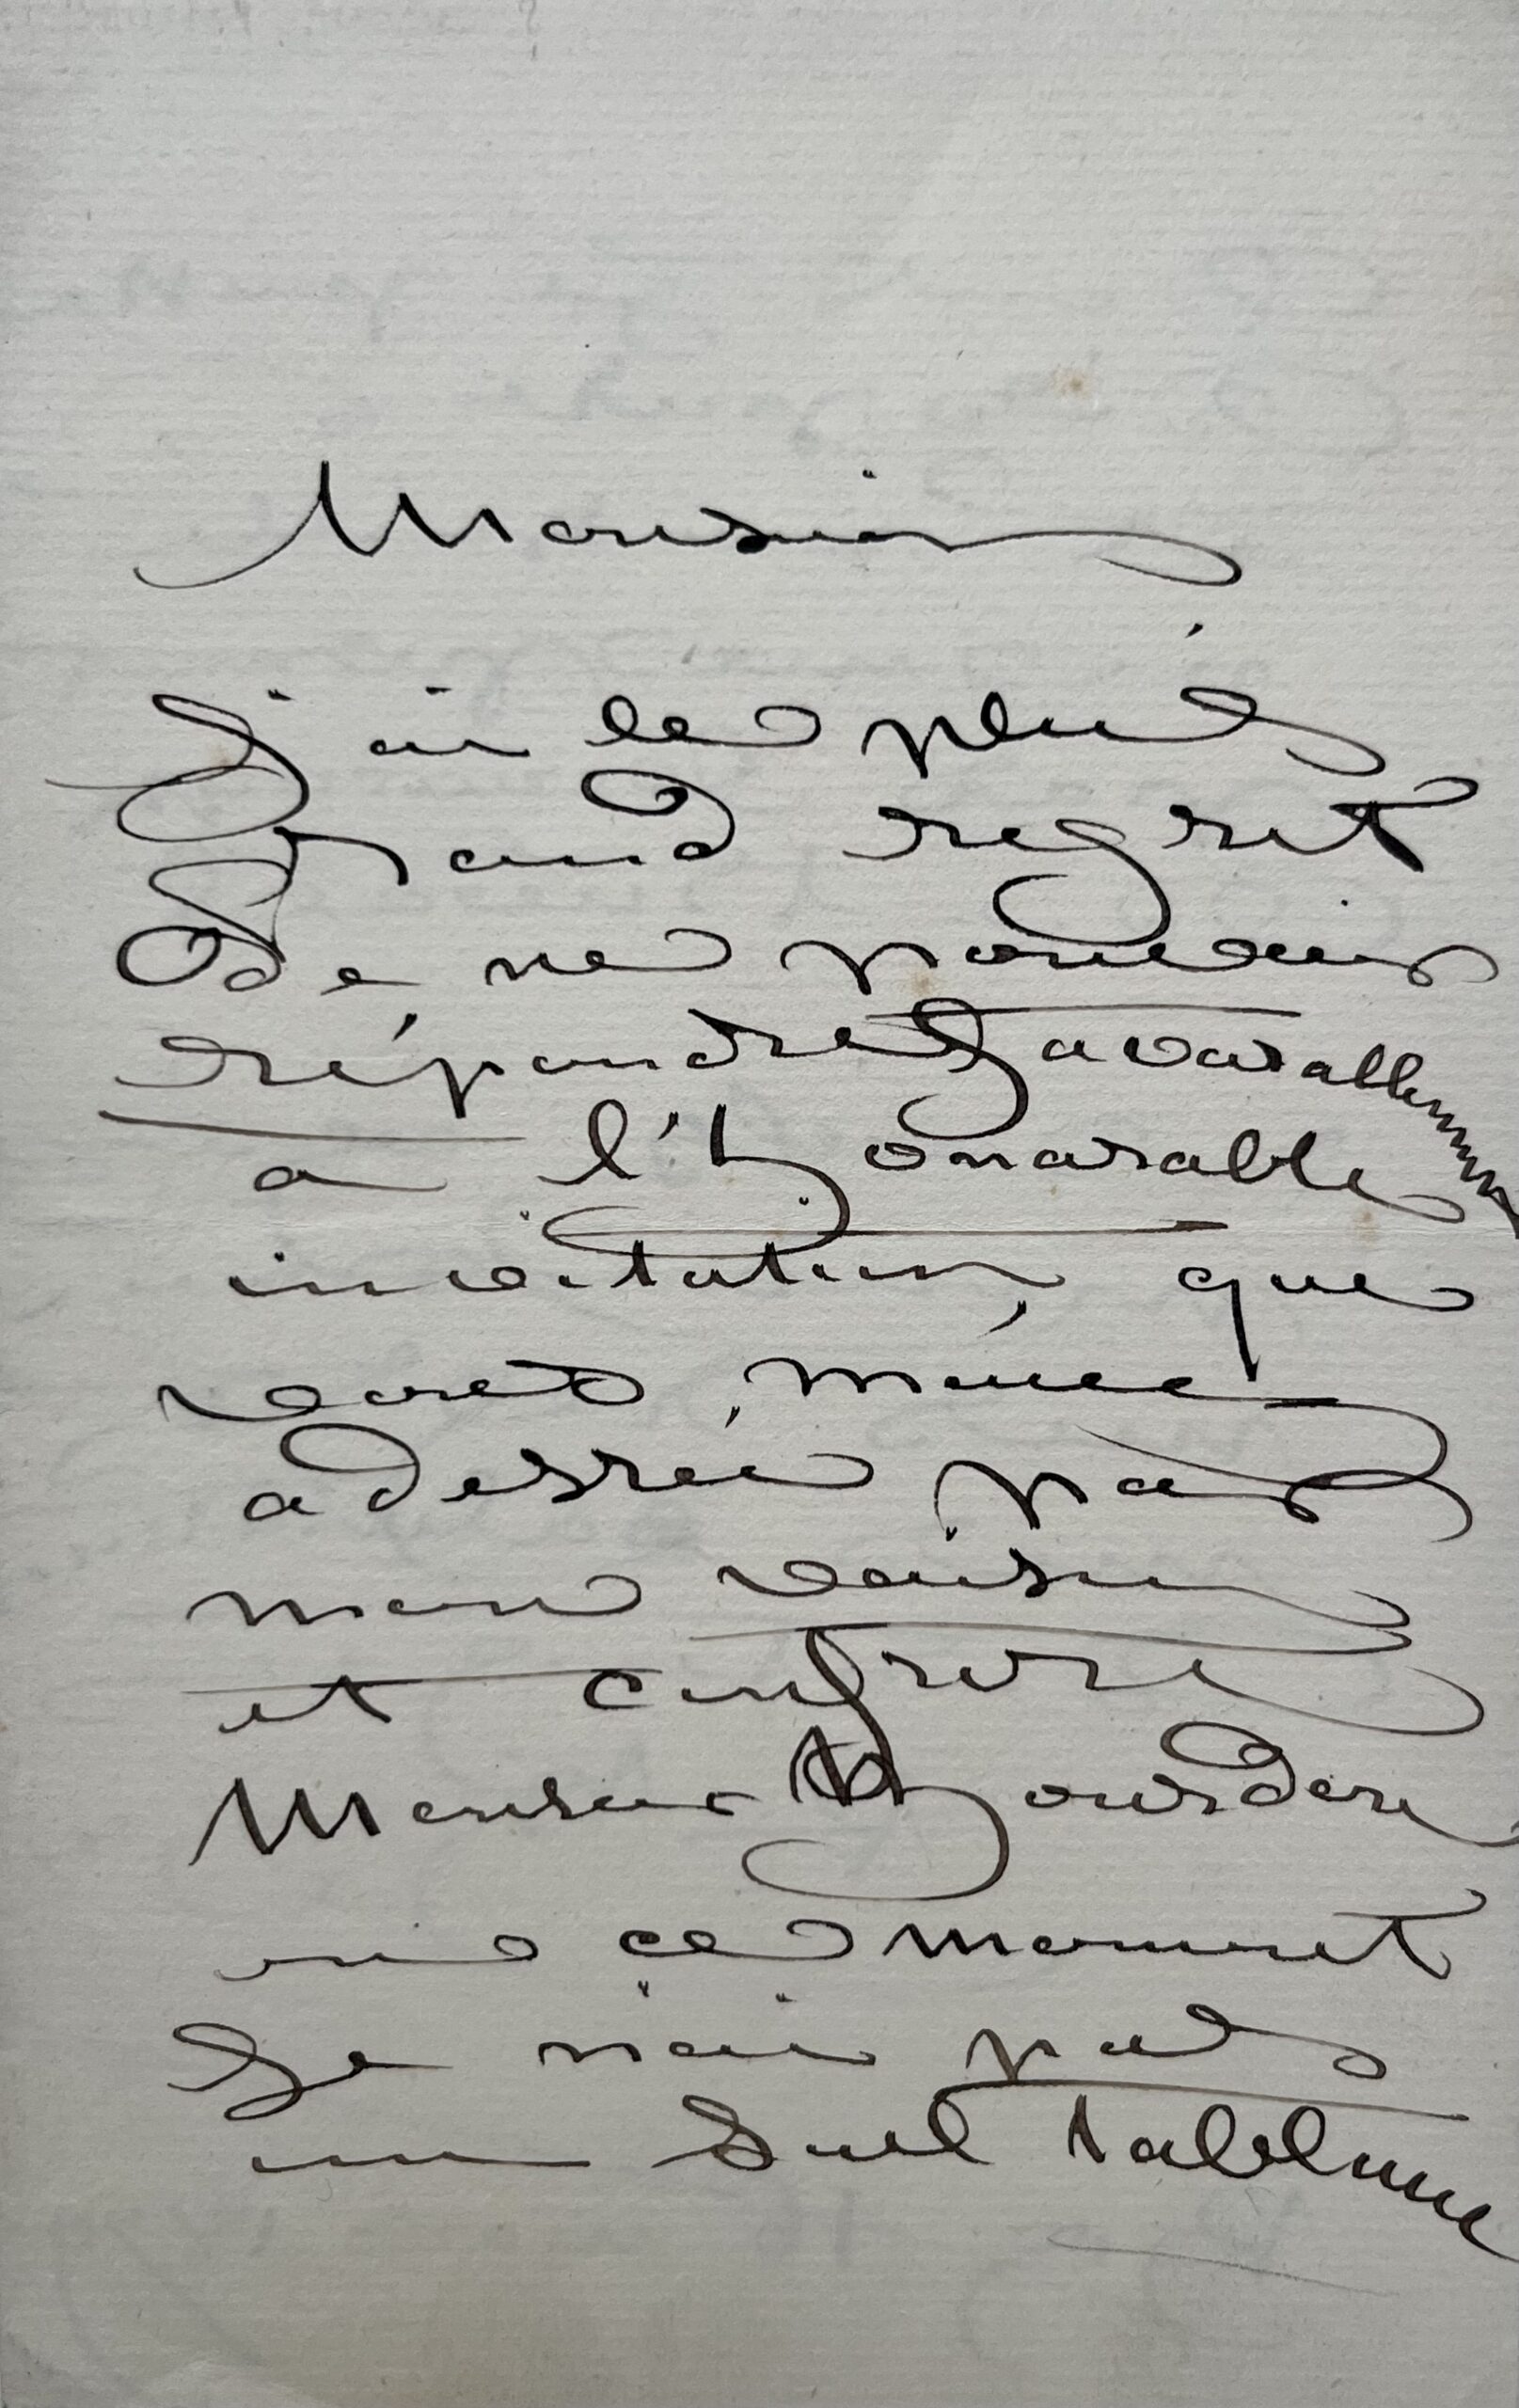 Monsieur
J'ai le plus
grand regret
de ne pouvoir
répondre favorablement
a l'honorable
invitation que
vous m'avez
adressée par
mon voisin
et confrère
Monsieur
en ce moment
Je n'ai pas
un seul tableau